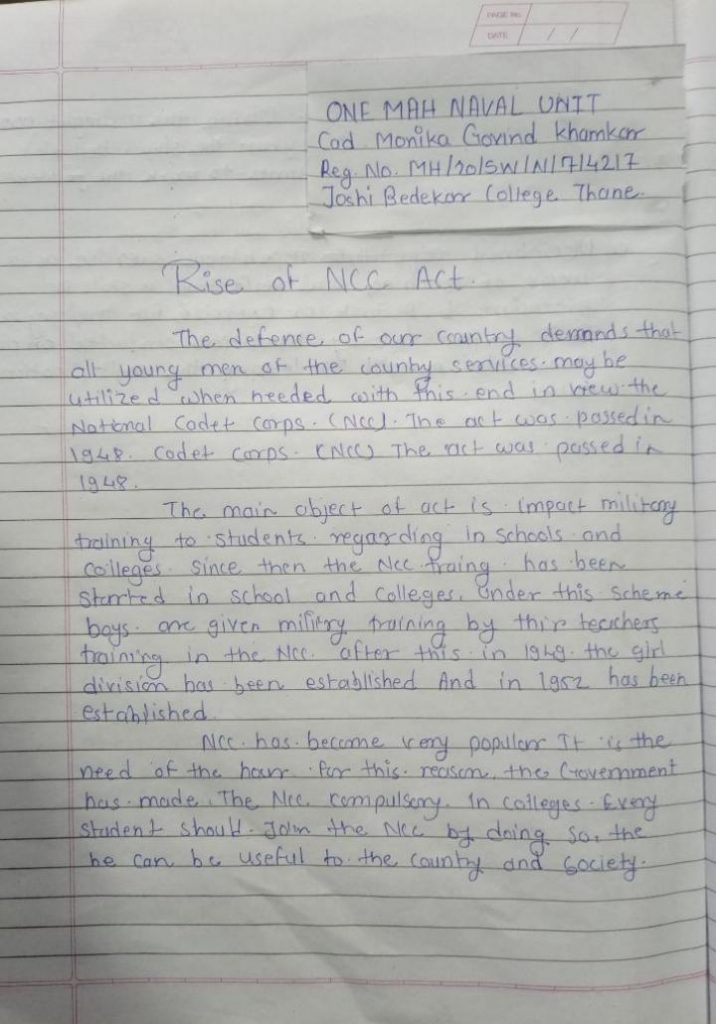 PAGE No.
DATE / /
ONE MAH NAVAL UNIT
Cad Monika Govind Khamkar
Reg. No. MH/20/SW/N/714217
Joshi Bedekar College Thane.
Rise of NCC Act.
The defence of our country demands that
all young men of the country services. may be
utilized when needed with this end in view the
National Cadet Corps. (NCC). The act was passed in
1948. Cadet Corps. (NCC) The act was passed in
1948.
The main object of act is impact military
training to students regarding in schools and
colleges. Since then the NCC traing has been
started in school and colleges. Under this scheme
boys are given military training by thir teachers
training in the NCC. after this in 1949. the girl
division has been established And in 1952 has been
established.
NCC. has become very popular It is the
need of the hour for this reason, the Government
has made. The NCC. compulsory. In colleges Every
student should Join the NCC by doing so, the
he can be useful to the country and society.